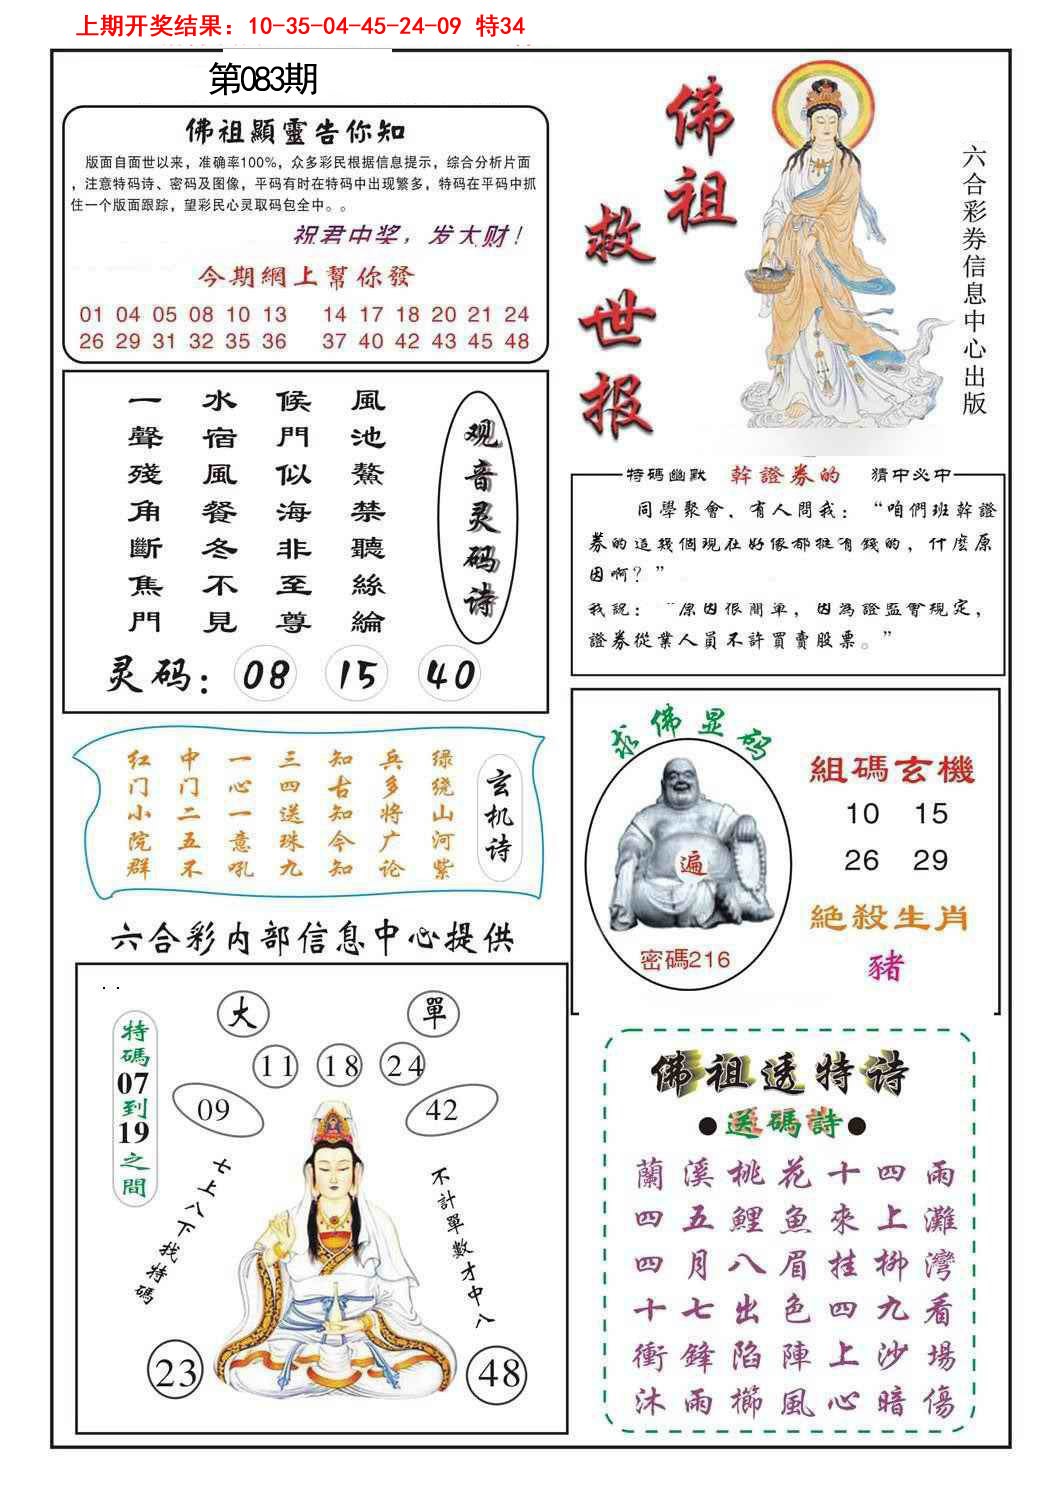 上期开奖结果：10-35-04-45-24-09 特34
第083期
佛祖顯靈告你知
版面自面世以来，准确率100%，众多彩民根据信息提示，综合分析片面
，注意特码诗、密码及图像，平码有时在特码中出现繁多，特码在平码中抓
住一个版面跟踪，望彩民心灵取码包全中。。
祝君中奖，发大财！
今期網上幫你發
01 04 05 08 10 13 14 17 18 20 21 24
26 29 31 32 35 36 37 40 42 43 45 48
佛祖
救世报
六合彩券信息中心出版
一水候風
聲宿門池
殘風似鰲
角餐海禁
斷冬非聽
焦不至絲
門見尊綸
观音灵码诗
灵码：08 15 40
特碼幽默 幹證券的 猜中必中
同學聚會，有人問我：“咱們班幹證
券的這幾個現在好像都挺有錢的，什麼原
因啊？”
我説：“原因很簡单，因為證監會规定，
證券從業人員不許買賣股票。”
红中一三知兵绿
门门心四古多绕
小二一送知将山
院五意珠今广河
群不吼九知论紫
玄机诗
求佛显码
遍
密碼216
組碼玄機
10 15
26 29
絕殺生肖
豬
六合彩内部信息中心提供
. .
大 單
11 18 24
09 42
特碼07到19之間
七上八下找特碼
不計單數才中八
23 48
佛祖透特诗
●送碼詩●
蘭溪桃花十四雨
四五鯉魚來上灘
四月八眉挂柳灣
十七出色四九看
衝鋒陷陣上沙場
沐雨櫛風心暗傷